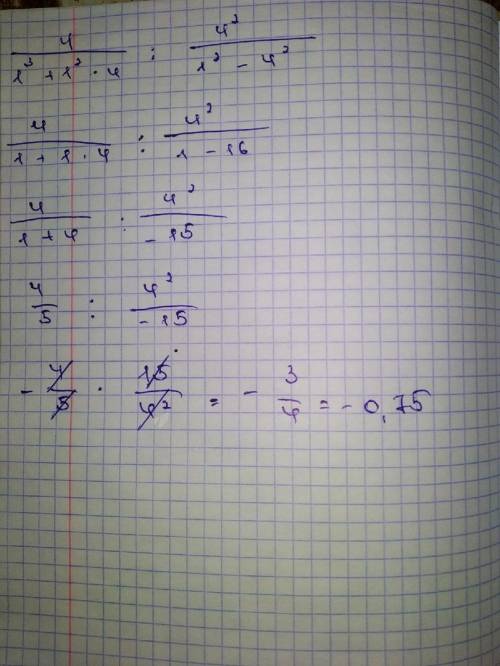 4/(1³ + 1² · 4) : 4²/(1² - 4²)
4/(1 + 1 · 4) : 4²/(1 - 16)
4/(1 + 4) : 4²/(-15)
4/5 : 4²/(-15)
- 4/5 · 15/4² = - 3/4 = - 0,75